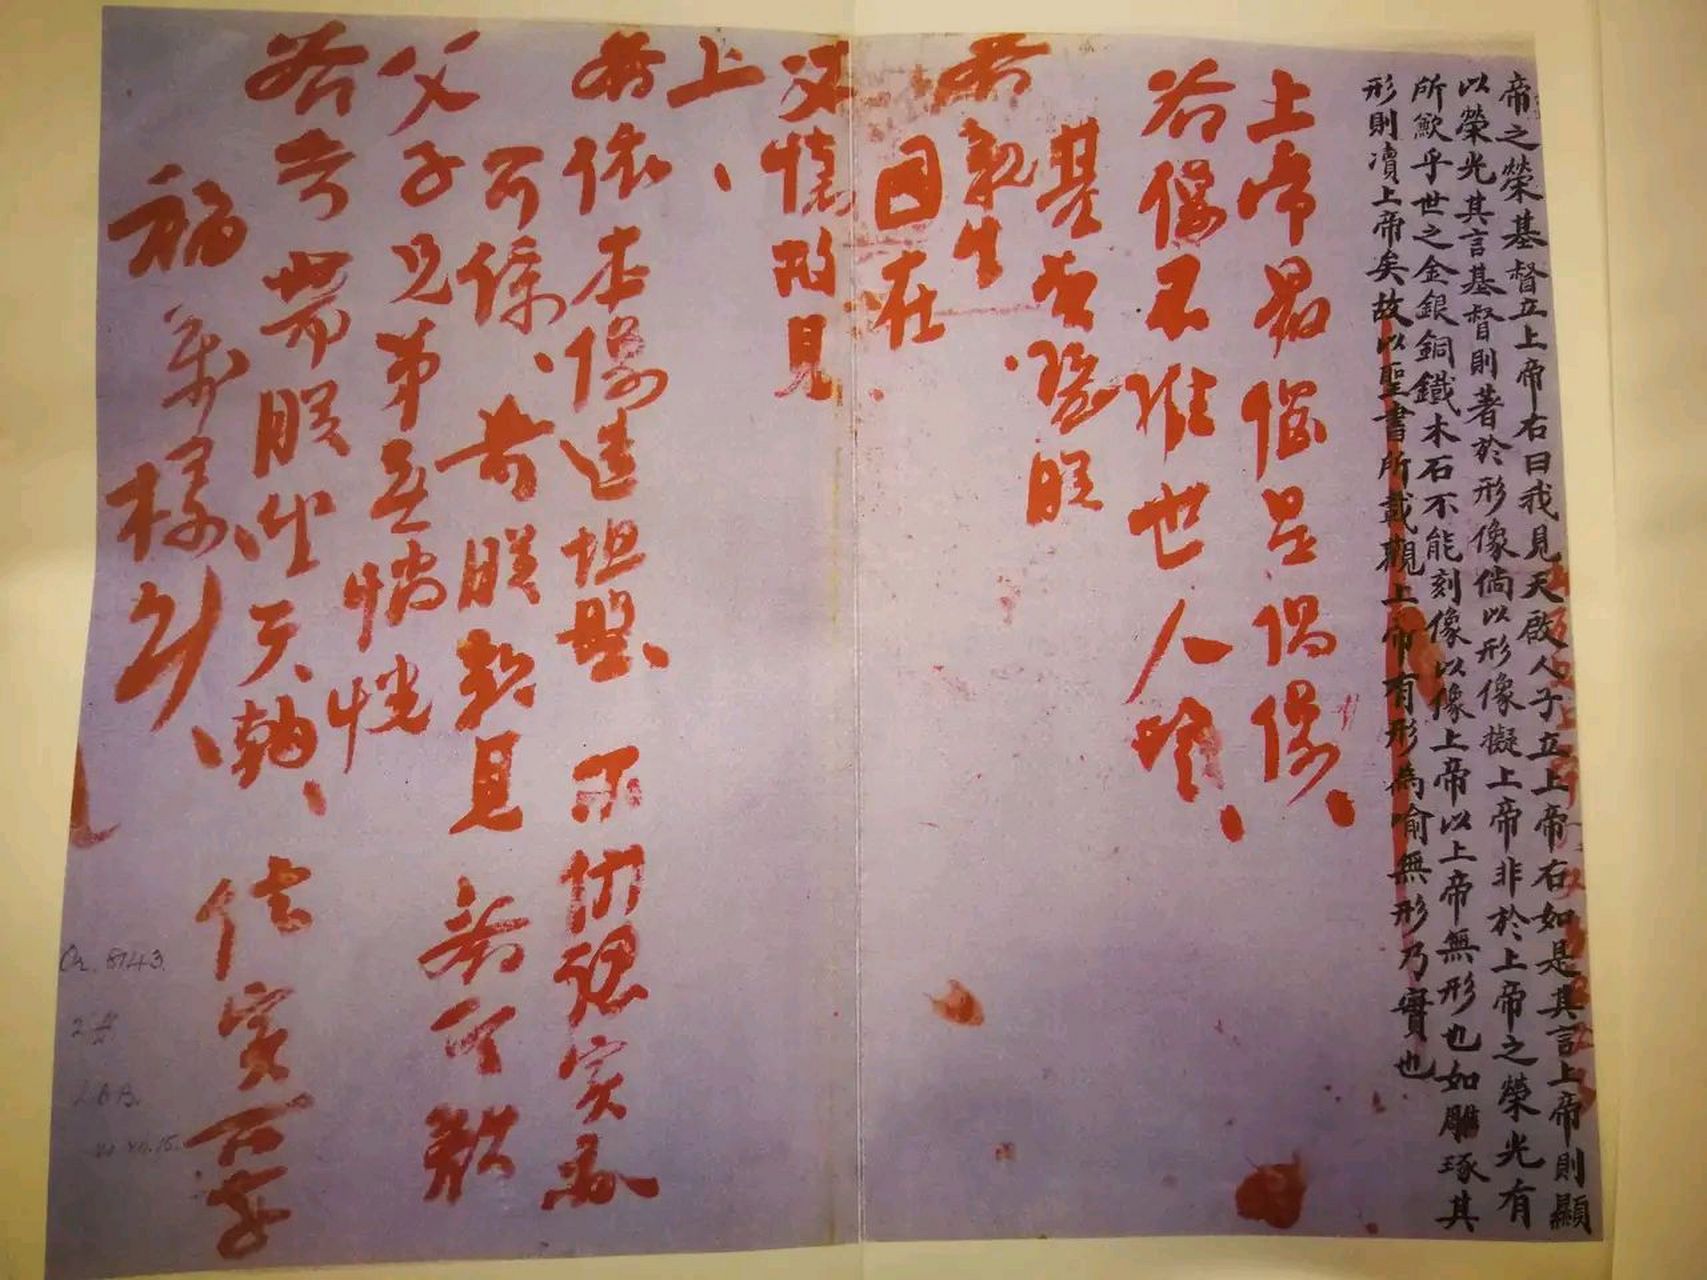 帝之榮基督立上帝右曰我見天啟人子立上帝右如是其言上帝則顯
以榮光其言基督則著於形像倘以形像擬上帝非於上帝之榮光有
所歉乎世之金銀銅鐵木石不能刻像以像上帝以上帝無形也如雕琢其
形則瀆上帝矣故以聖書所載觀上帝有形為喻無形乃實也
上帝最惱是偶像、
爺像不准世人望、
基督暨朕
爺親生
因在
父懷故見
上、
爺依本像造坦盤、爾們認實
可像、前朕親見 爺可
父子兄弟無惝恍
爺哥帶朕坐天朝、信實可享
福萬樣
Or. 8143